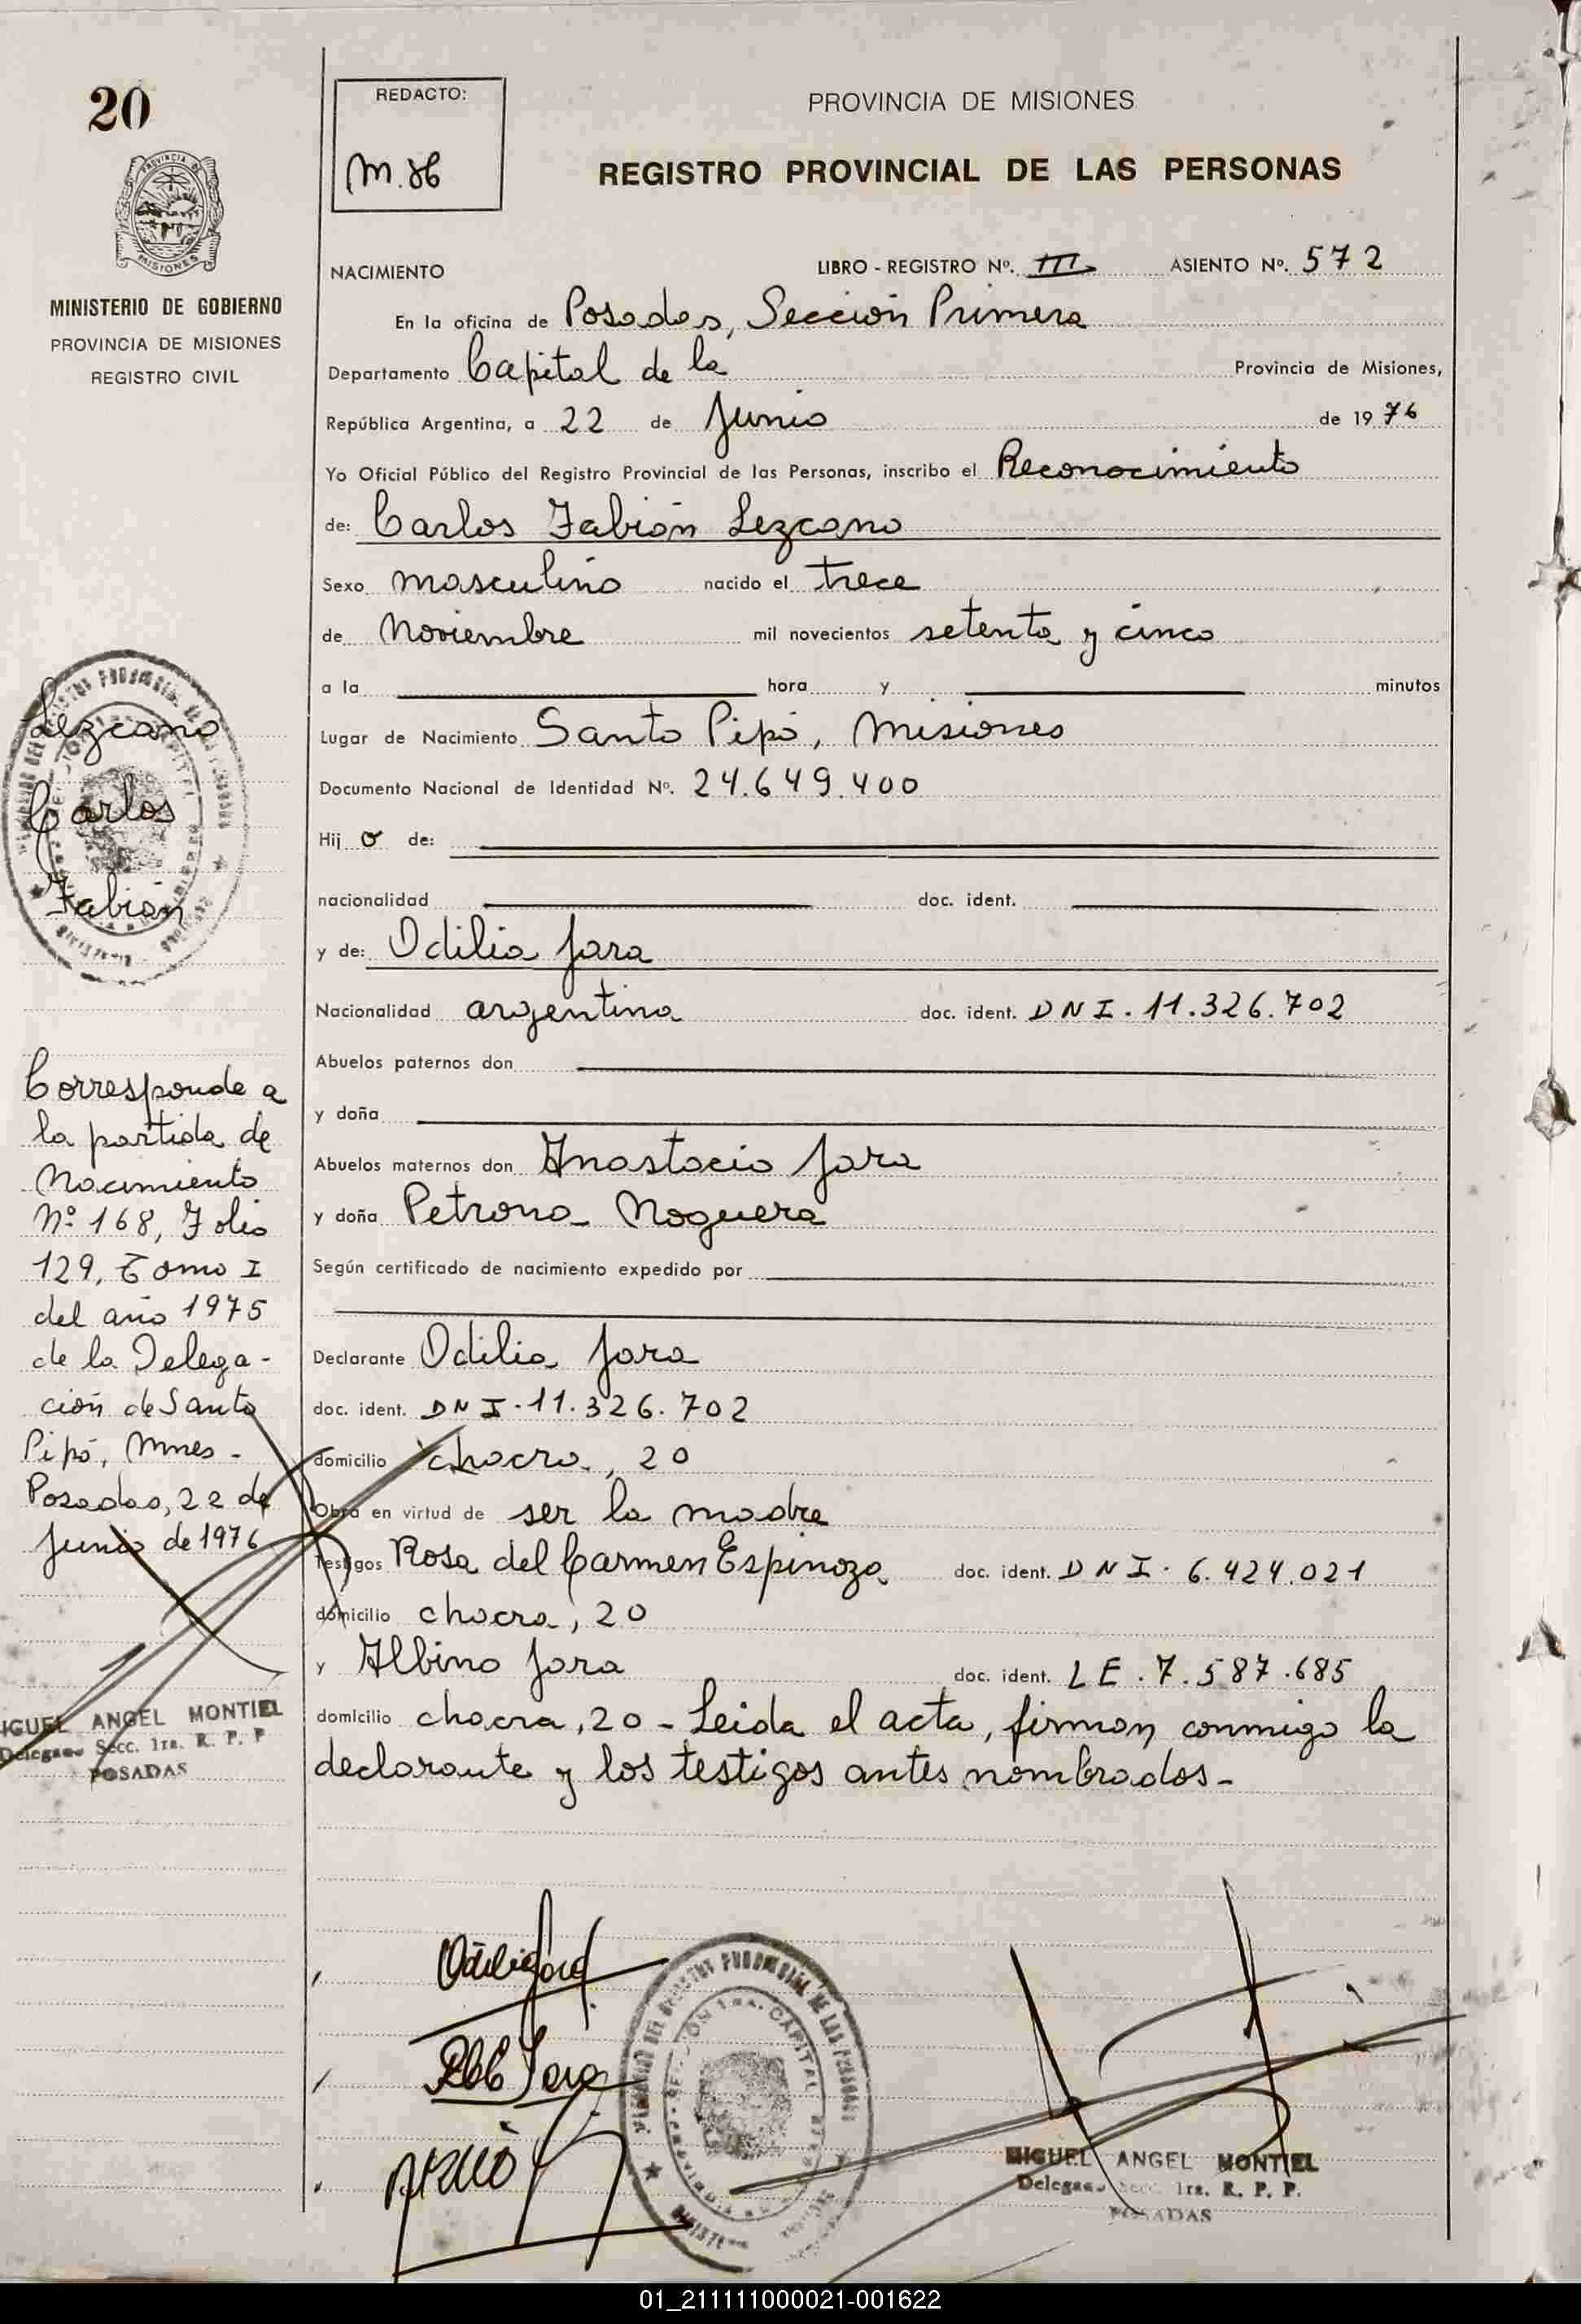 20
REDACTO:
M.S6
PROVINCIA DE MISIONES
REGISTRO PROVINCIAL DE LAS PERSONAS
PROVINCIA DE
MISIONES
MINISTERIO DE GOBIERNO
PROVINCIA DE MISIONES
REGISTRO CIVIL
NACIMIENTO LIBRO - REGISTRO Nº. III ASIENTO Nº. 572
En la oficina de Posadas, Sección Primera
Departamento Capital de la Provincia de Misiones,
República Argentina, a 22 de Junio de 1976
Yo Oficial Público del Registro Provincial de las Personas, inscribo el Reconocimiento
de: Carlos Fabián Lezcano
Sexo masculino nacido el trece
de Noviembre mil novecientos setenta y cinco
a la hora y minutos
Lugar de Nacimiento Santo Pipó, Misiones
Documento Nacional de Identidad Nº. 24.649.400
Hij o de:
nacionalidad doc. ident.
y de: Odilia Jara
Nacionalidad argentina doc. ident. DNI. 11.326.702
Abuelos paternos don
y doña
Abuelos maternos don Anastacio Jara
y doña Petrona Noguera
Según certificado de nacimiento expedido por
Declarante Odilia Jara
doc. ident. DNI. 11.326.702
domicilio chacra, 20
Obra en virtud de ser la madre
Testigos Rosa del Carmen Espinoza doc. ident. DNI. 6.424.021
domicilio chacra, 20
y Albino Jara doc. ident. LE. 7.587.685
domicilio chacra, 20 - Leida el acta, firman conmigo la
declarante y los testigos antes nombrados-
Lezcano
Carlos
Fabián
Corresponde a
la partida de
Nacimiento
Nº 168, Folio
129, Tomo I
del año 1975
de la Delega-
ción de Santo
Pipó, Mnes-
Posadas, 22 de
Junio de 1976
MIGUEL ANGEL MONTIEL
Delegado Secc. 1ra. R. P. P.
POSADAS
Odilia Jara
MIGUEL ANGEL MONTIEL
Delegado Secc. 1ra. R. P. P.
POSADAS
01_211111000021-001622